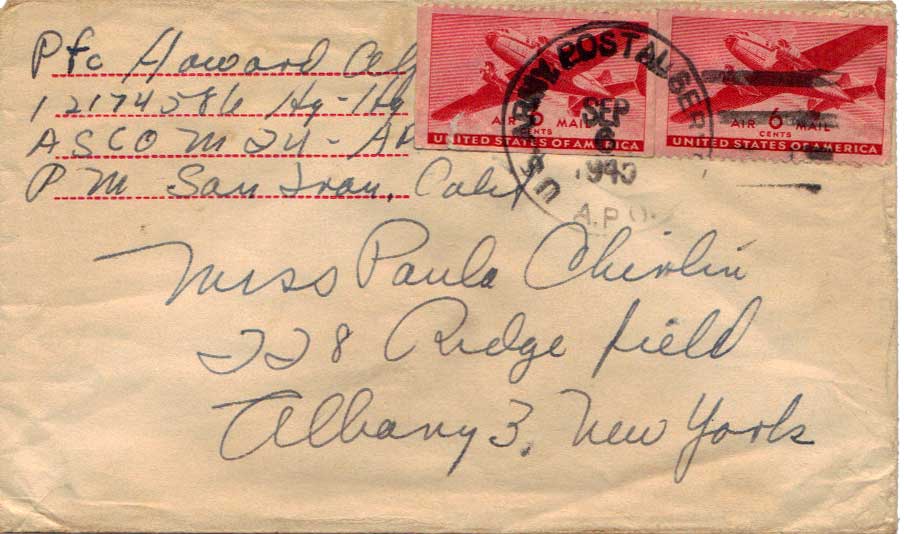 Pfc Howard
12174586 Hq-Hq
ASCOM 24 - AP
PM San Fran, Calif
AIR 6 MAIL
CENTS
UNITED STATES OF AMERICA
AIR 6 MAIL
CENTS
UNITED STATES OF AMERICA
U.S. ARMY POSTAL SER
SEP
6
1945
A.P.O.
Miss Paula Chirlin
228 Ridge field
Albany 3, New York